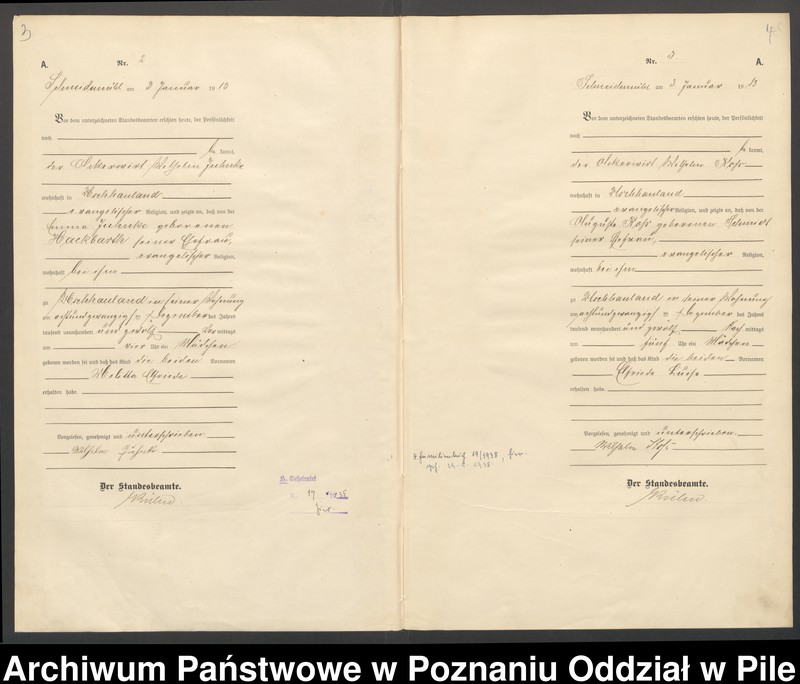 3
A.
Nr. 2
Schneidemühl am 3 Januar 1913
Vor dem unterzeichneten Standesbeamten erschien heute, der Persönlichkeit
nach
kannt,
der Ackerwirt Wilhelm
wohnhaft in Hochhauland
evangelischer Religion, und zeigte an, daß von der
Emma geborenen
Hackbarth seiner Ehefrau,
evangelischer Religion,
wohnhaft bei ihm
zu Hochhauland in seiner Wohnung
am achtundzwanzigsten Dezember des Jahres
tausend neunhundert und zwölf Vormittags
um vier Uhr ein Mädchen
geboren worden sei und daß das Kind die beiden Vornamen
Elfriede
erhalten habe
Vorgelesen, genehmigt und unterschrieben
Wilhelm
Der Standesbeamte.
4
Nr. 3
A.
Schneidemühl am 3 Januar 1913
Vor dem unterzeichneten Standesbeamten erschien heute, der Persönlichkeit
nach
kannt,
der Ackerwirt Wilhelm
wohnhaft in Hochhauland
evangelischer Religion, und zeigte an, daß von der
Auguste geborenen Schmidt
seiner Ehefrau,
evangelischer Religion,
wohnhaft bei ihm
zu Hochhauland in seiner Wohnung
am achtundzwanzigsten Dezember des Jahres
tausend neunhundert und zwölf Nachmittags
um fünf Uhr ein Mädchen
geboren worden sei und daß das Kind die beiden Vornamen
Elfriede
erhalten habe
Vorgelesen, genehmigt und unterschrieben
Wilhelm
Der Standesbeamte.
Archiwum Państwowe w Poznaniu Oddział w Pile